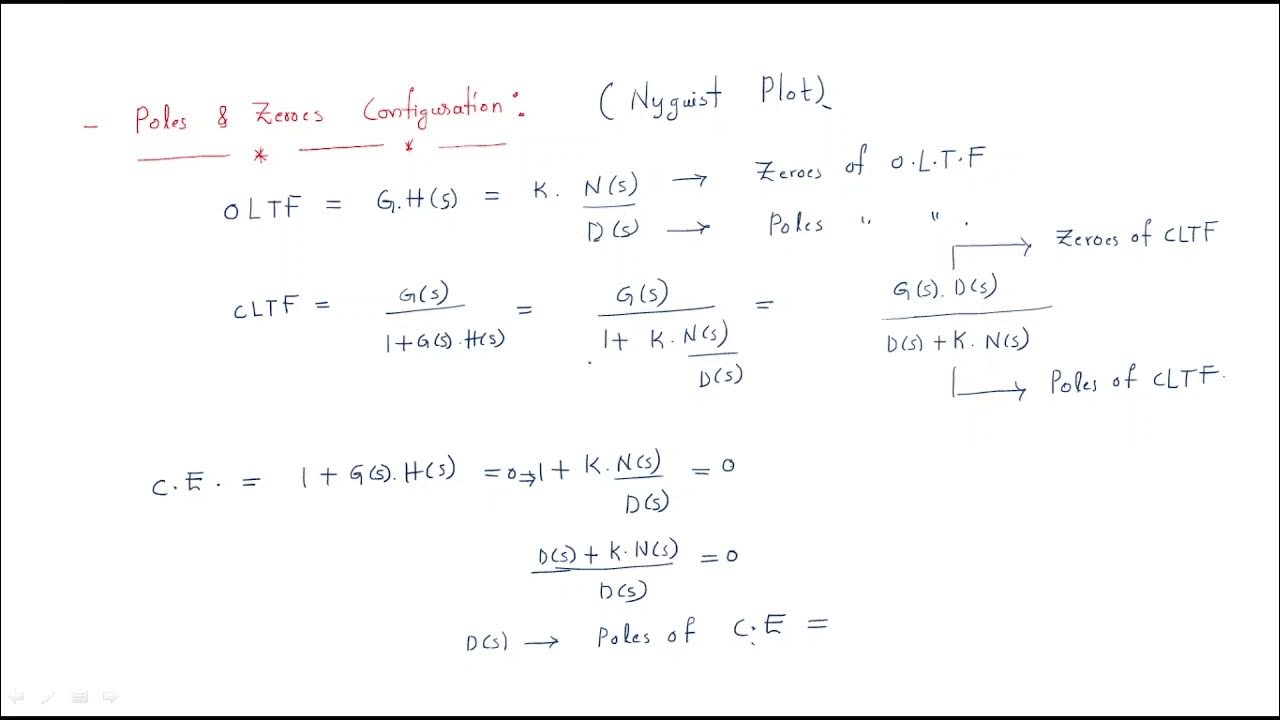 - Poles & Zeroes Configuration: (Nyquist Plot)
OLTF = G.H(s) = K. N(s)/D(s) → Zeroes of O.L.T.F
→ Poles " " .
→ Zeroes of CLTF
CLTF = G(s)/1+G(s).H(s) = G(s)/1+ K. N(s)/D(s) = G(s). D(s)/D(s) + K. N(s)
→ Poles of CLTF.
C.E. = 1 + G(s).H(s) = 0 ⇒ 1 + K. N(s)/D(s) = 0
D(s) + K. N(s)/D(s) = 0
D(s) → Poles of C.E =